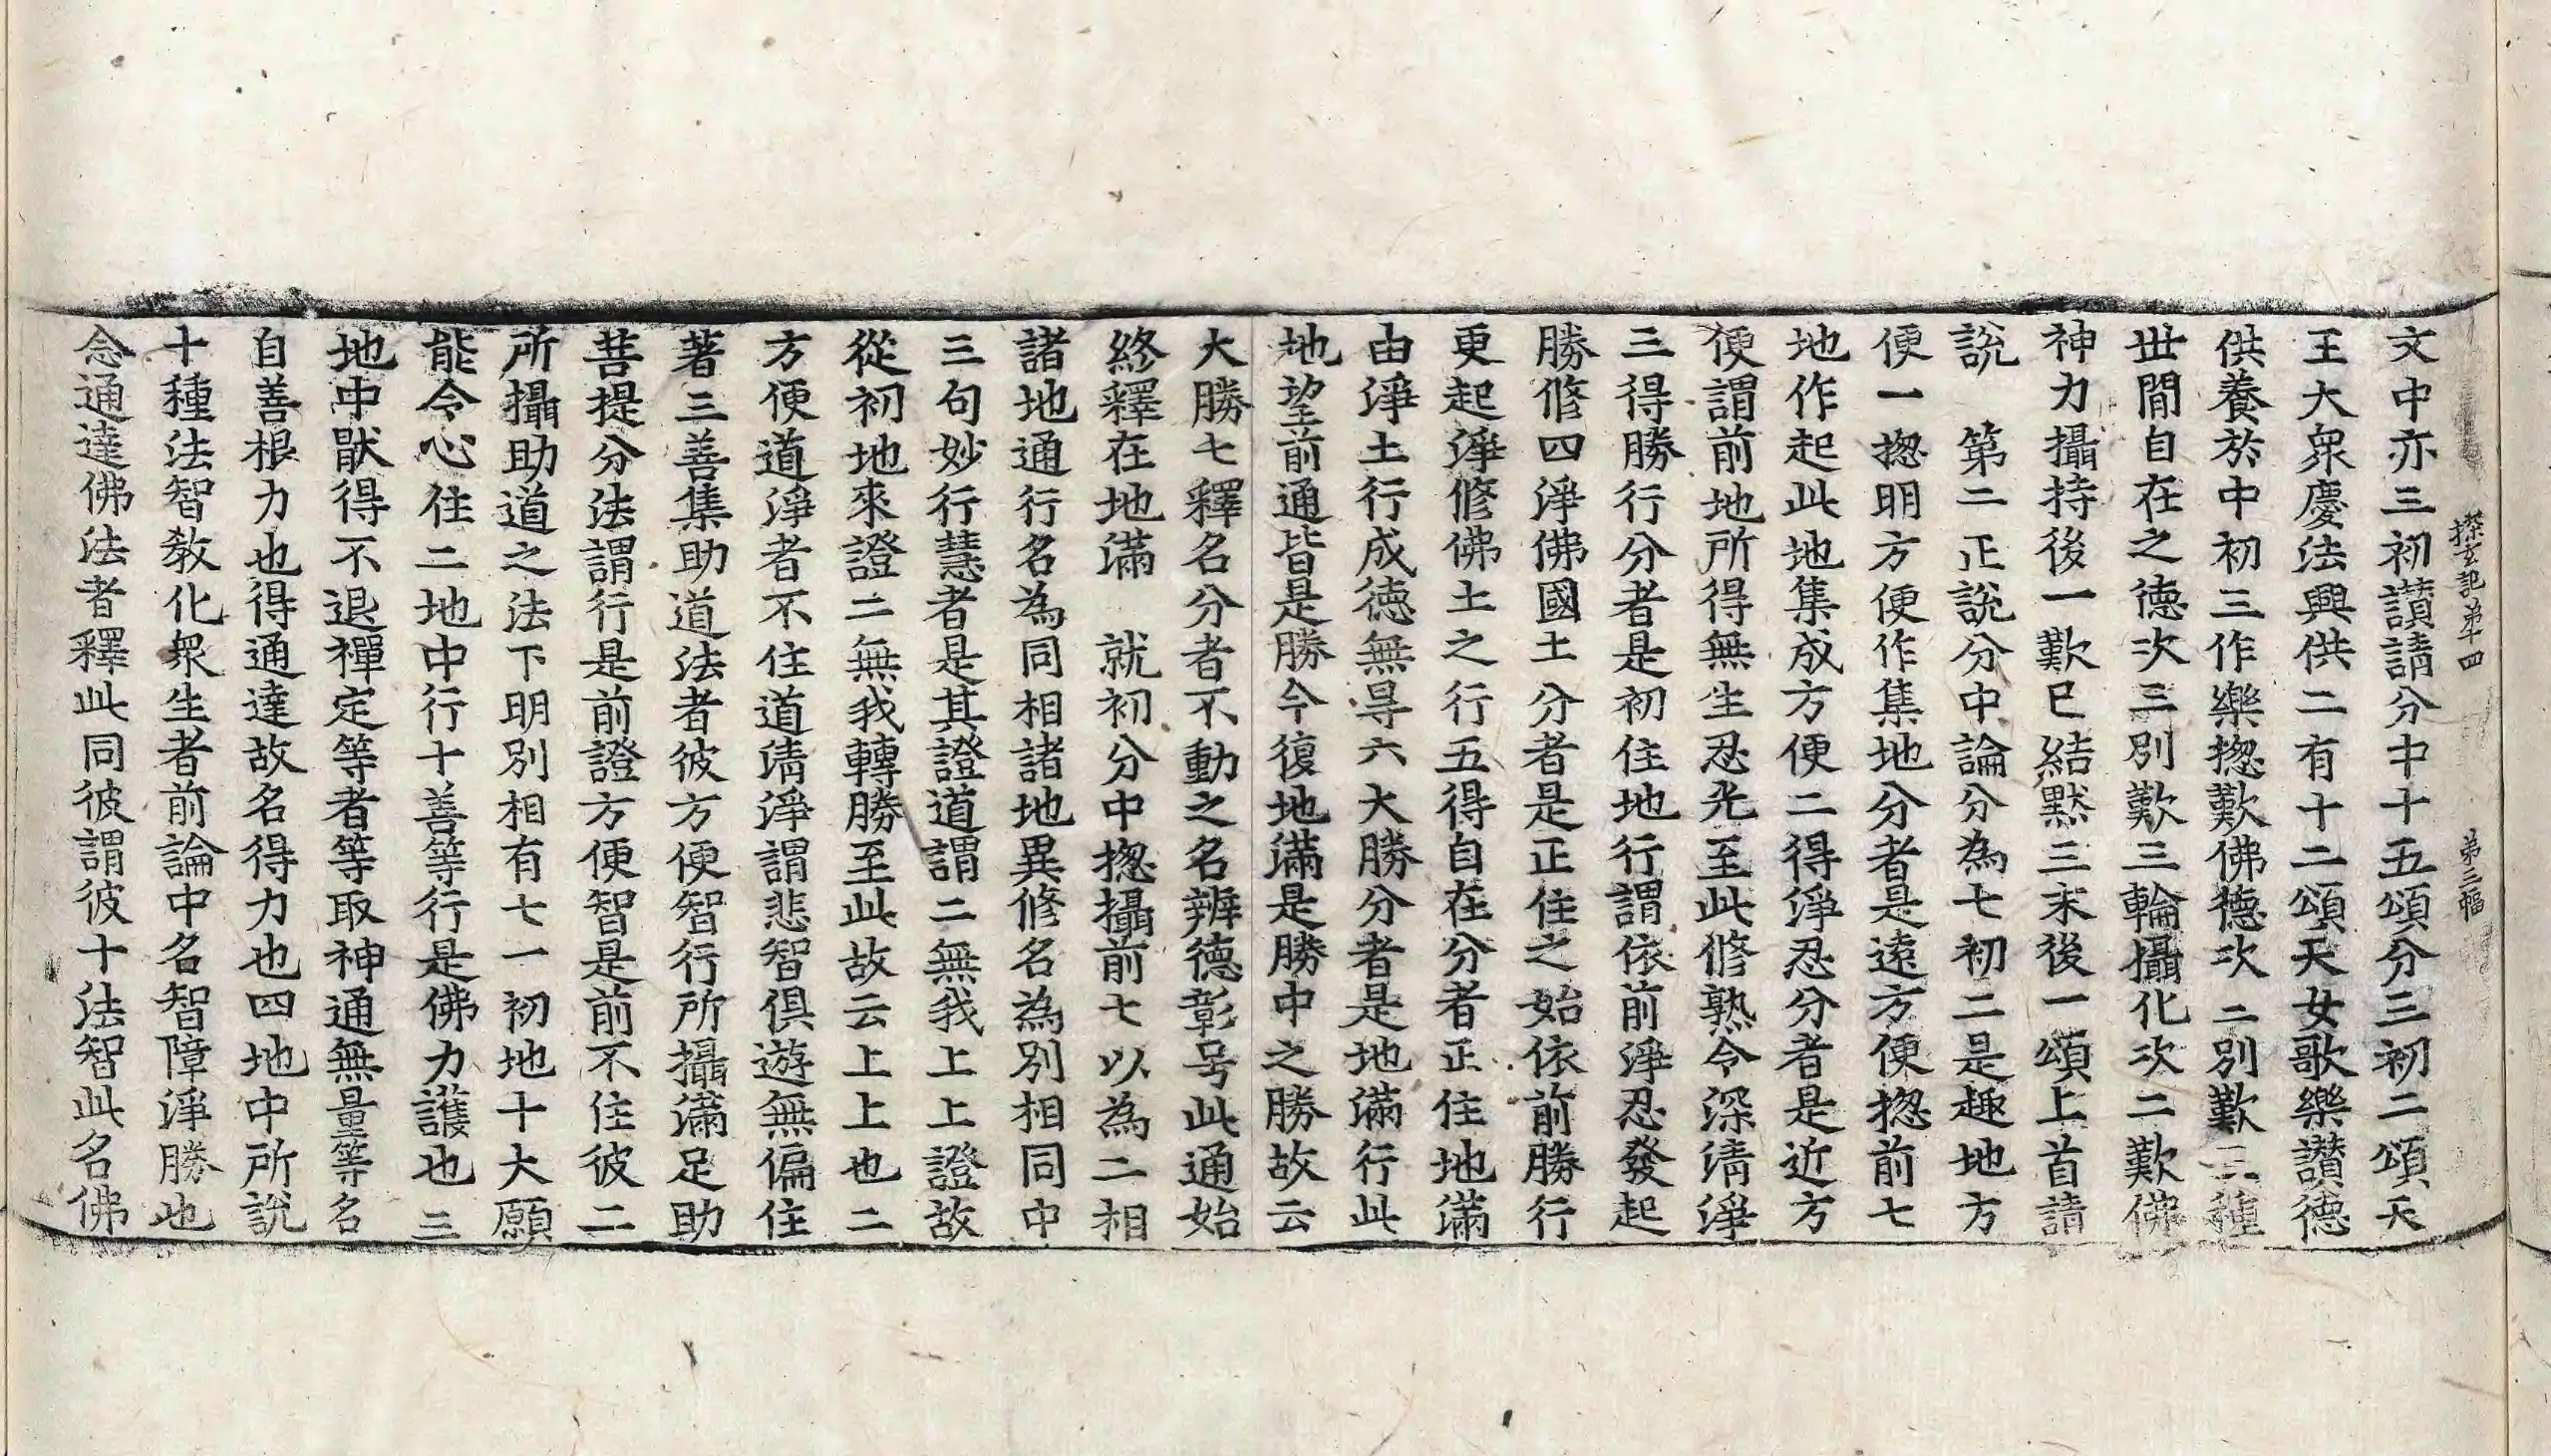 探玄記第十四 第三幅
文中亦三初讃請分中十五頌分三初二頌天
王大衆慶法興供二有十二頌天女歌樂讃德
供養於中初三作樂揔歎佛德次二別歎三種
世間自在之德次三別歎三輪攝化次二歎佛
神力攝持後一歎已結黙三末後一頌上首請
說　第二正說分中論分為七初二是趣地方
便一揔明方便作集地分者是遠方便揔前七
地作起此地集成方便二得淨忍分者是近方
便謂前地所得無生忍光至此修熟令深淸淨
三得勝行分者是初住地行謂依前淨忍發起
勝修四淨佛國土分者是正住之始依前勝行
更起淨修佛土之行五得自在分者正住地滿
由淨土行成德無㝵六大勝分者是地滿行此
地望前通皆是勝今復地滿是勝中之勝故云
大勝七釋名分者不動之名辨德彰号此通始
終釋在地滿　就初分中揔攝前七以為二相
諸地通行名為同相諸地異修名為別相同中
三句妙行慧者是其證道謂二無我上上證故
從初地來證二無我轉勝至此故云上上也二
方便道淨者不住道淸淨謂悲智俱遊無偏住
著三善集助道法者彼方便智行所攝滿足助
菩提分法謂行是前證方便智是前不住彼二
所攝助道之法下明別相有七一初地十大願
能令心住二地中行十善等行是佛力護也三
地中猒得不退禪定等者等取神通無量等名
自善根力也得通達故名得力也四地中所說
十種法智教化衆生者前論中名智障淨勝也
念通達佛法者釋此同彼謂彼十法智此名佛